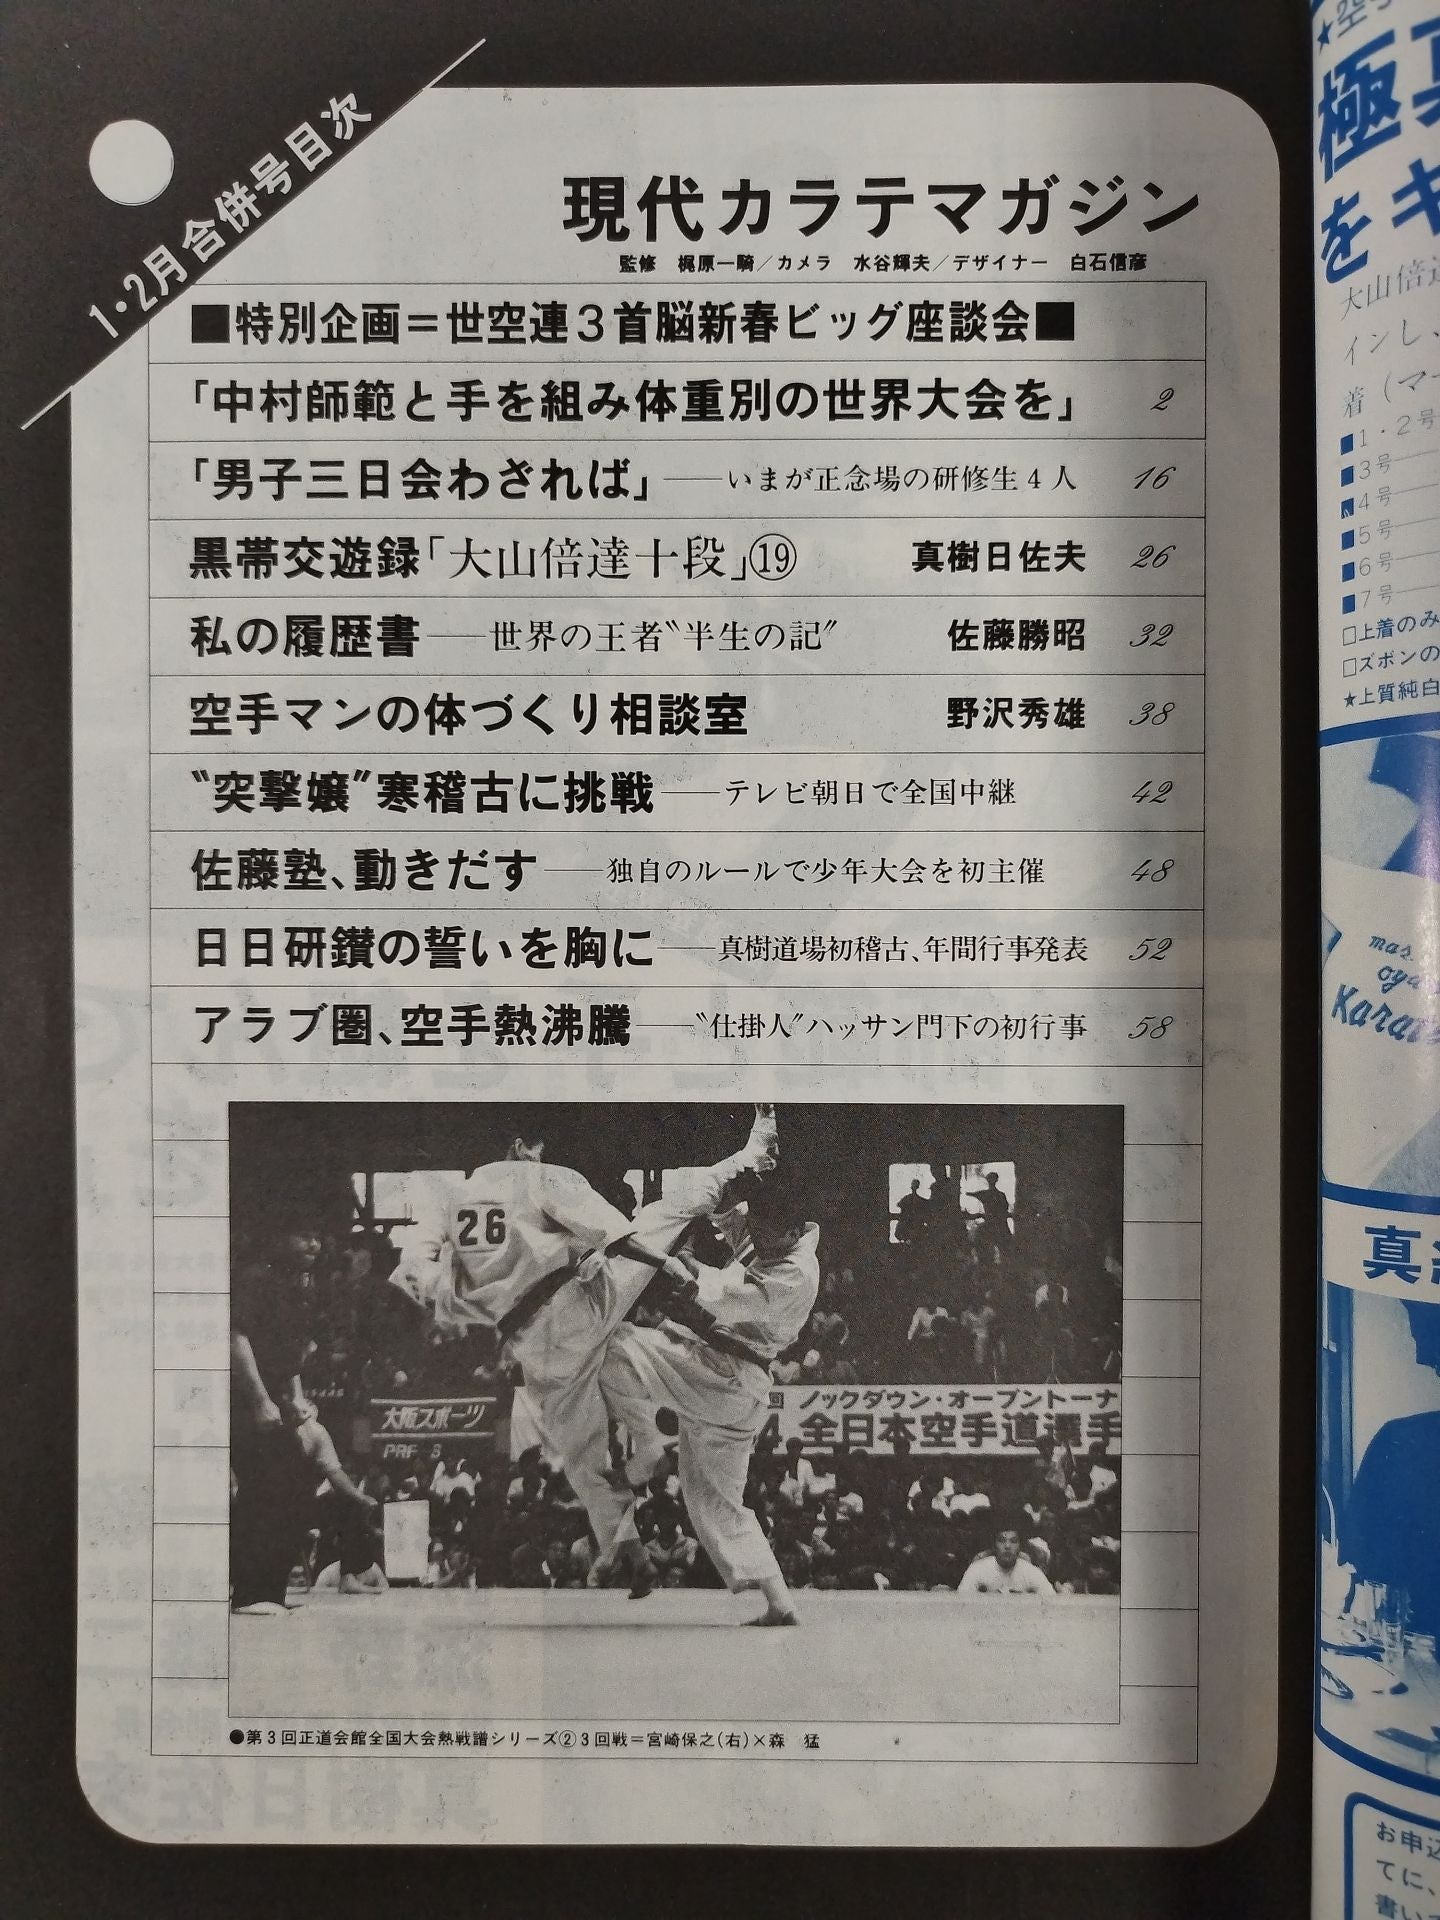 1・2月合併号目次
現代カラテマガジン
監修 梶原一騎／カメラ 水谷輝夫／デザイナー 白石信彦
■特別企画＝世空連3首脳新春ビッグ座談会■
「中村師範と手を組み体重別の世界大会を」 2
「男子三日会わざれば」――いまが正念場の研修生4人 16
黒帯交遊録「大山倍達十段」⑲ 真樹日佐夫 26
私の履歴書――世界の王者〝半生の記〟 佐藤勝昭 32
空手マンの体づくり相談室 野沢秀雄 38
〝突撃嬢〟寒稽古に挑戦――テレビ朝日で全国中継 42
佐藤塾、動きだす――独自のルールで少年大会を初主催 48
日日研鑚の誓いを胸に――真樹道場初稽古、年間行事発表 52
アラブ圏、空手熱沸騰――〝仕掛人〟ハッサン門下の初行事 58
26
大阪スポーツ
回 ノックダウン・オープントーナ
4 全日本空手道選手
●第3回正道会館全国大会熱戦譜シリーズ② 3回戦＝宮崎保之（右）×森 猛
極真
をキ
大山倍達
インし、
着（マー
■1・2号
■3号
■4号
■5号
■6号
■7号
□上着のみ
□ズボンの
★上質純白
mas
oya
Karate
真
お申込
てに、
書いて